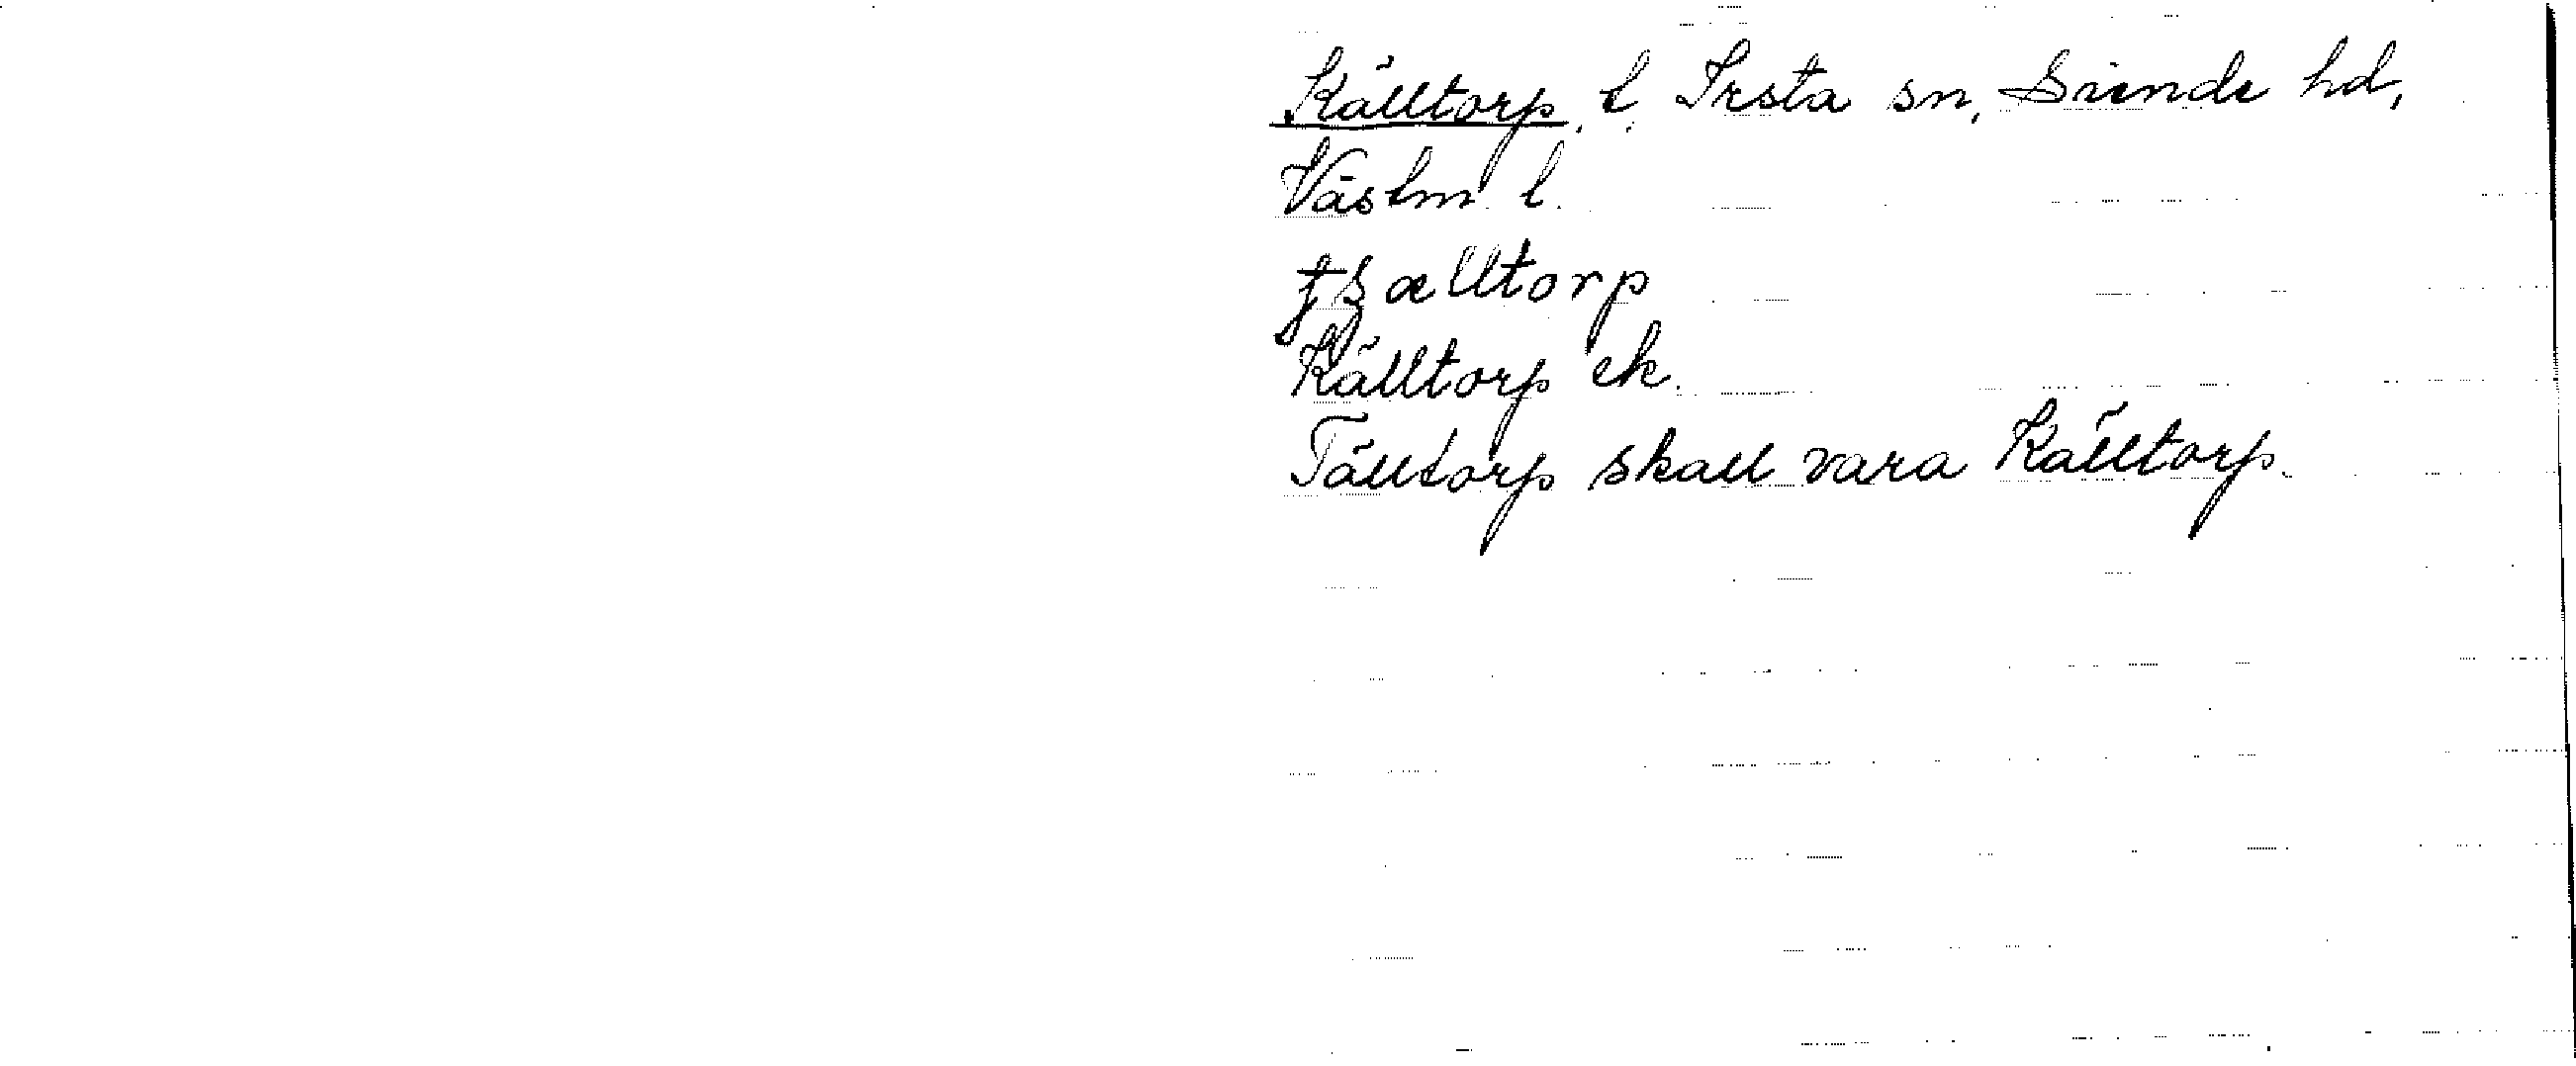 Källtorp, l, Irsta sn, Siende hd,
Västm l.
tʂælltorp
Källtorp ek.
Tälltorp skall vara Källtorp.